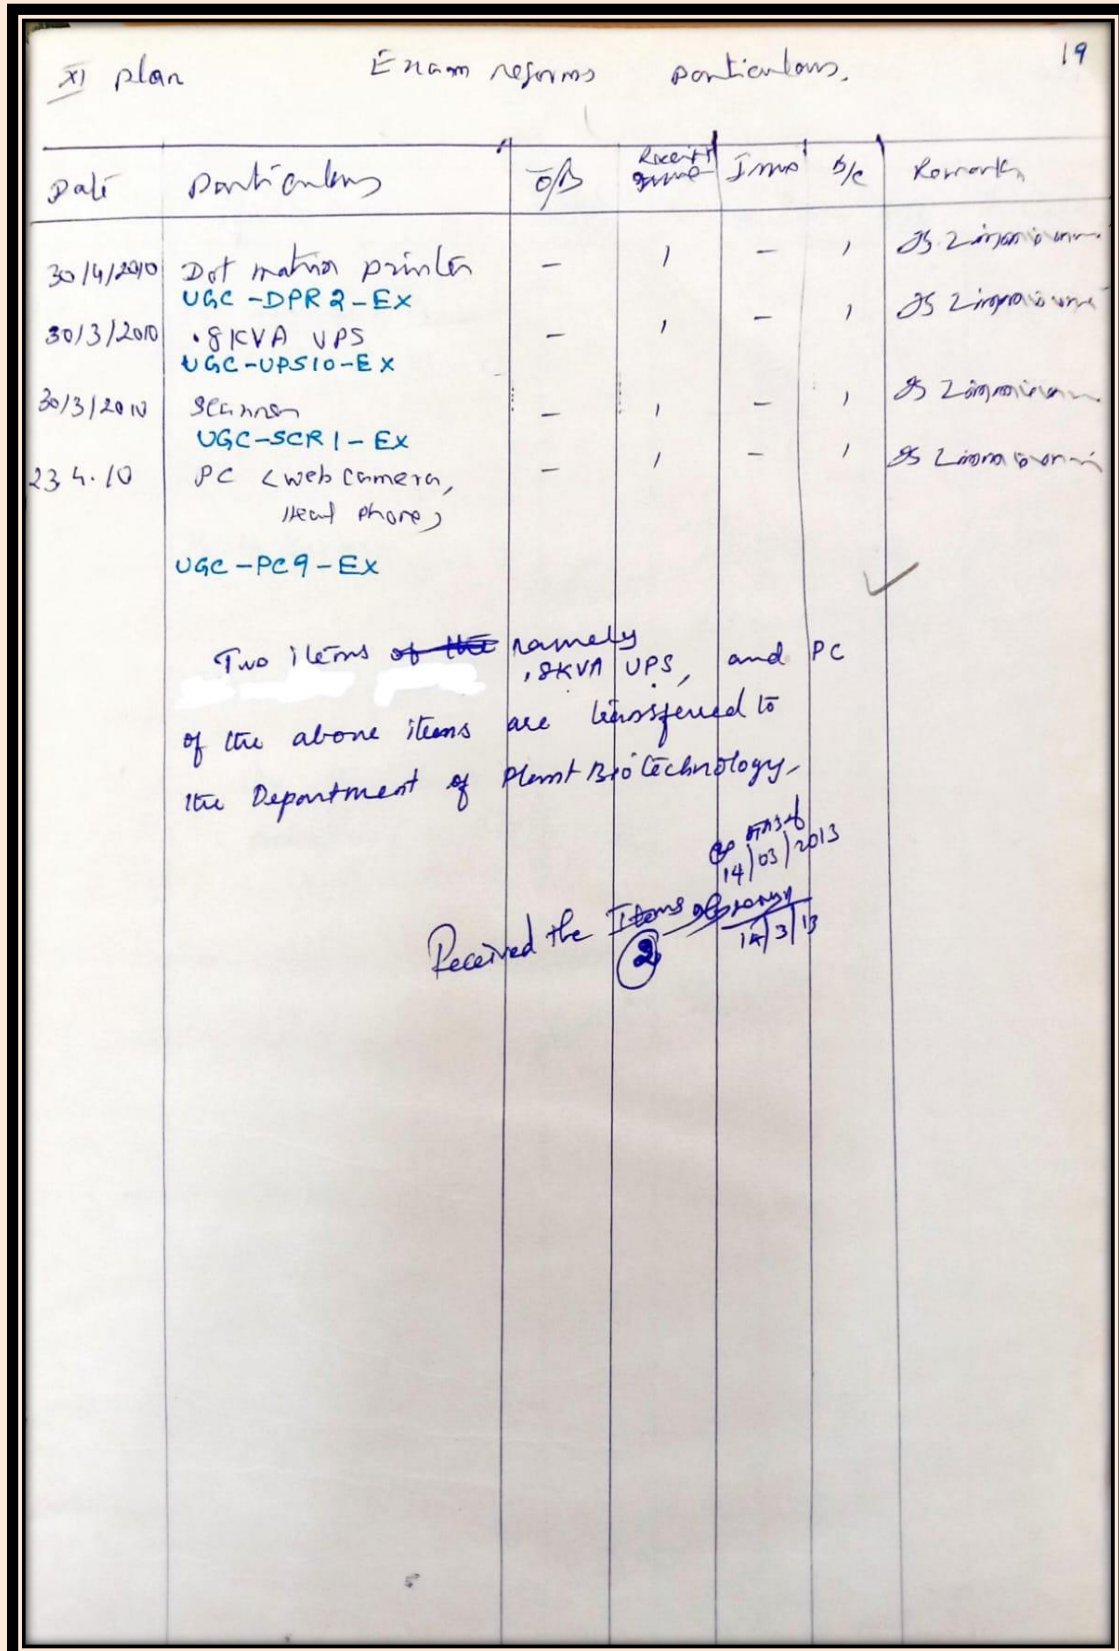 XI plan Exam reforms particulars. 19
Date Particulars O/B Receipt Issue B/C Remarks
30/4/2010 Dot matrix printer – 1 – 1
UGC-DPR2-EX
30/3/2010 .8KVA UPS – 1 – 1
UGC-UPS10-EX
30/3/2010 Scanner – 1 – 1
UGC-SCR1-EX
23.4.10 PC (web camera, – 1 – 1
Head phone)
UGC-PC9-EX
Two items of the namely
.8KVA UPS, and PC
of the above items are transferred to
the Department of Plant Biotechnology.
14/03/2013
Received the Items
2 14/3/13